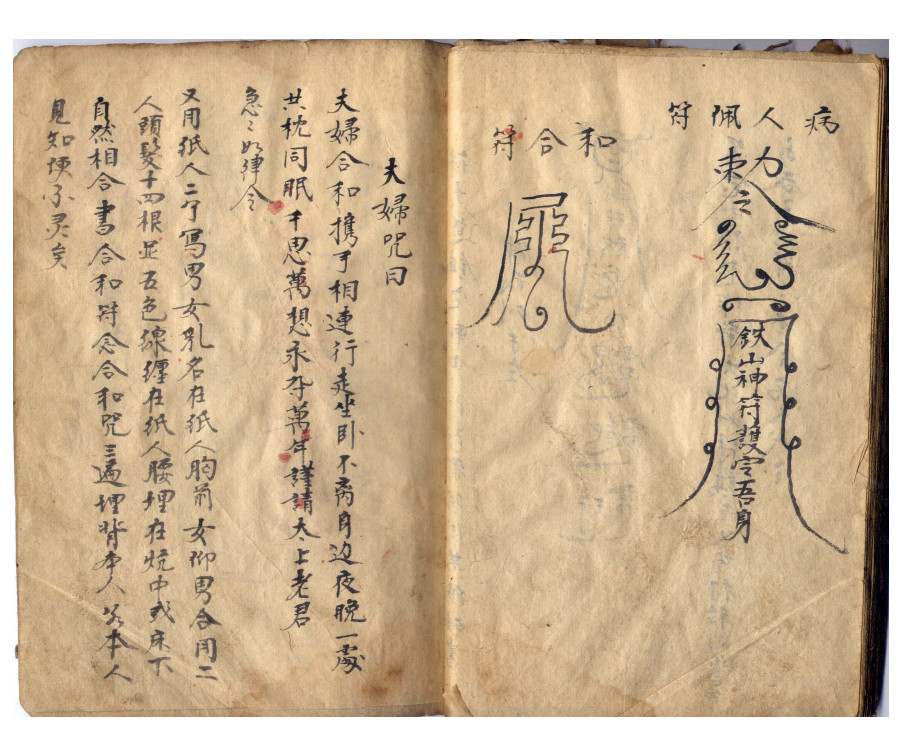 病人佩符
鉄山神符護定吾身
和合符
夫婦咒曰
夫婦合和携手相連行走坐卧不离身边夜晚一處
共枕同眠千思萬想永存萬年謹請太上老君
急〻如律令
又用纸人二个寫男女乳名在纸人胸前女仰男合用二
人頭髮十四根並五色線纏在纸人腰埋在炕中或床下
自然相合書合和符念合和咒三遍埋背本人若本人
見知便不灵矣